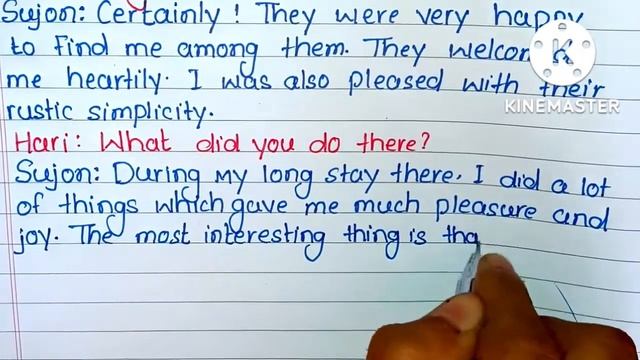 Sujon: Certainly! They were very happy
to find me among them. They welcom
me heartily. I was also pleased with their
rustic simplicity.
KINEMASTER
Hari: What did you do there?
Sujon: During my long stay there, I did a lot
of things which gave me much pleasure and
joy. The most interesting thing is tha